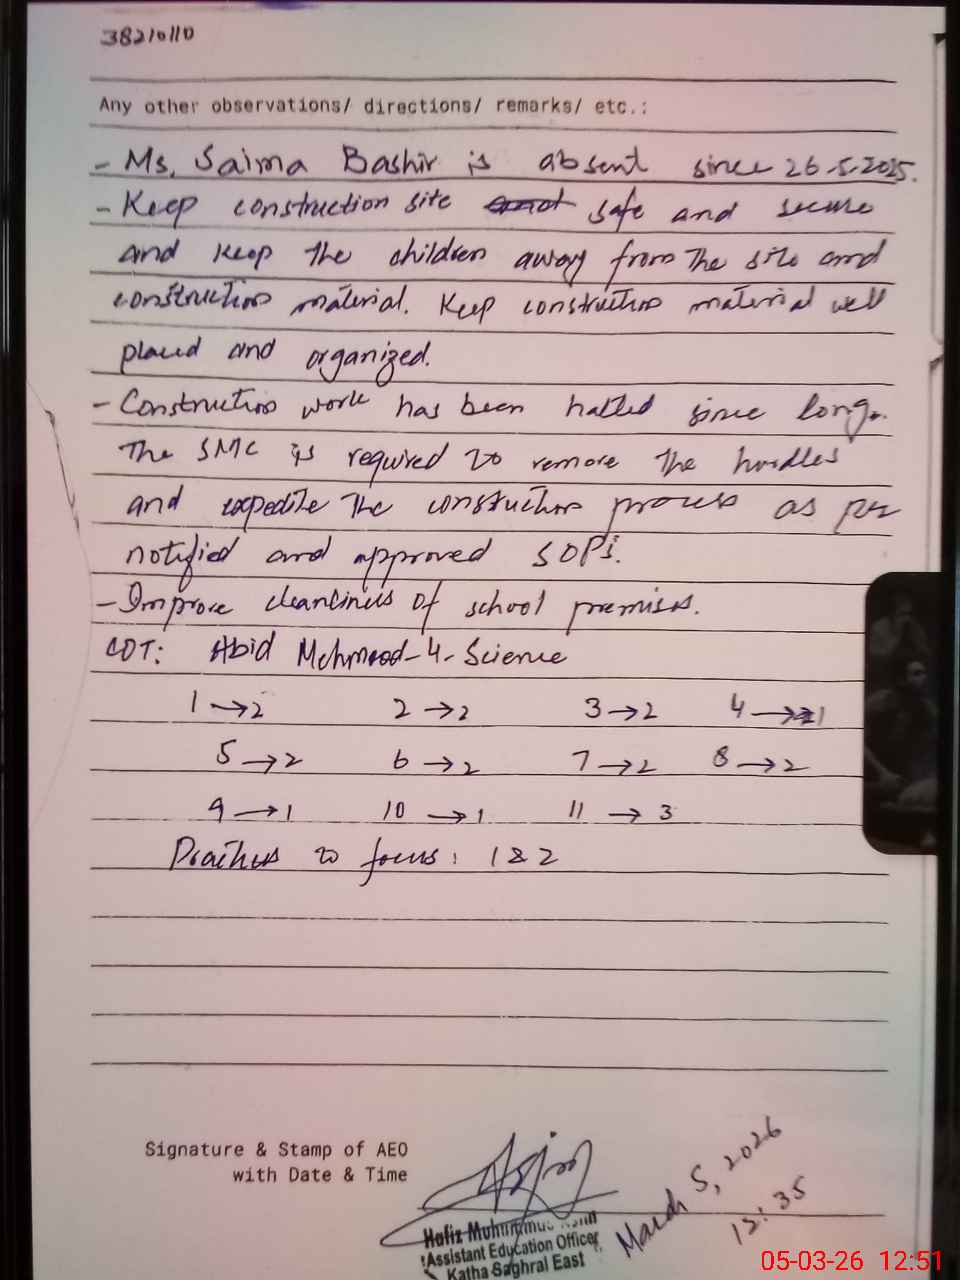 38210110
Any other observations/ directions/ remarks/ etc.:
- Ms. Saima Bashir is absent since 26.5.2025.
- Keep construction site safe and secure
and keep the children away from the site and
construction material. Keep construction material well
placed and organized.
- Construction work has been halted since long.
The SMC is required to remove the hurdles
and expedite the construction process as per
notified and approved SOPs.
- Improve cleanliness of school premises.
COT: Abid Mehmood - 4 - Science
1 → 2 2 → 2 3 → 2 4 → 1
5 → 2 6 → 2 7 → 2 8 → 2
9 → 1 10 → 1 11 → 3
Practices to focus: 1 & 2
Signature & Stamp of AEO
with Date & Time
March 5, 2026
12:35
Hafiz
Assistant Education Officer
Katha Saghral East
05-03-26 12:51